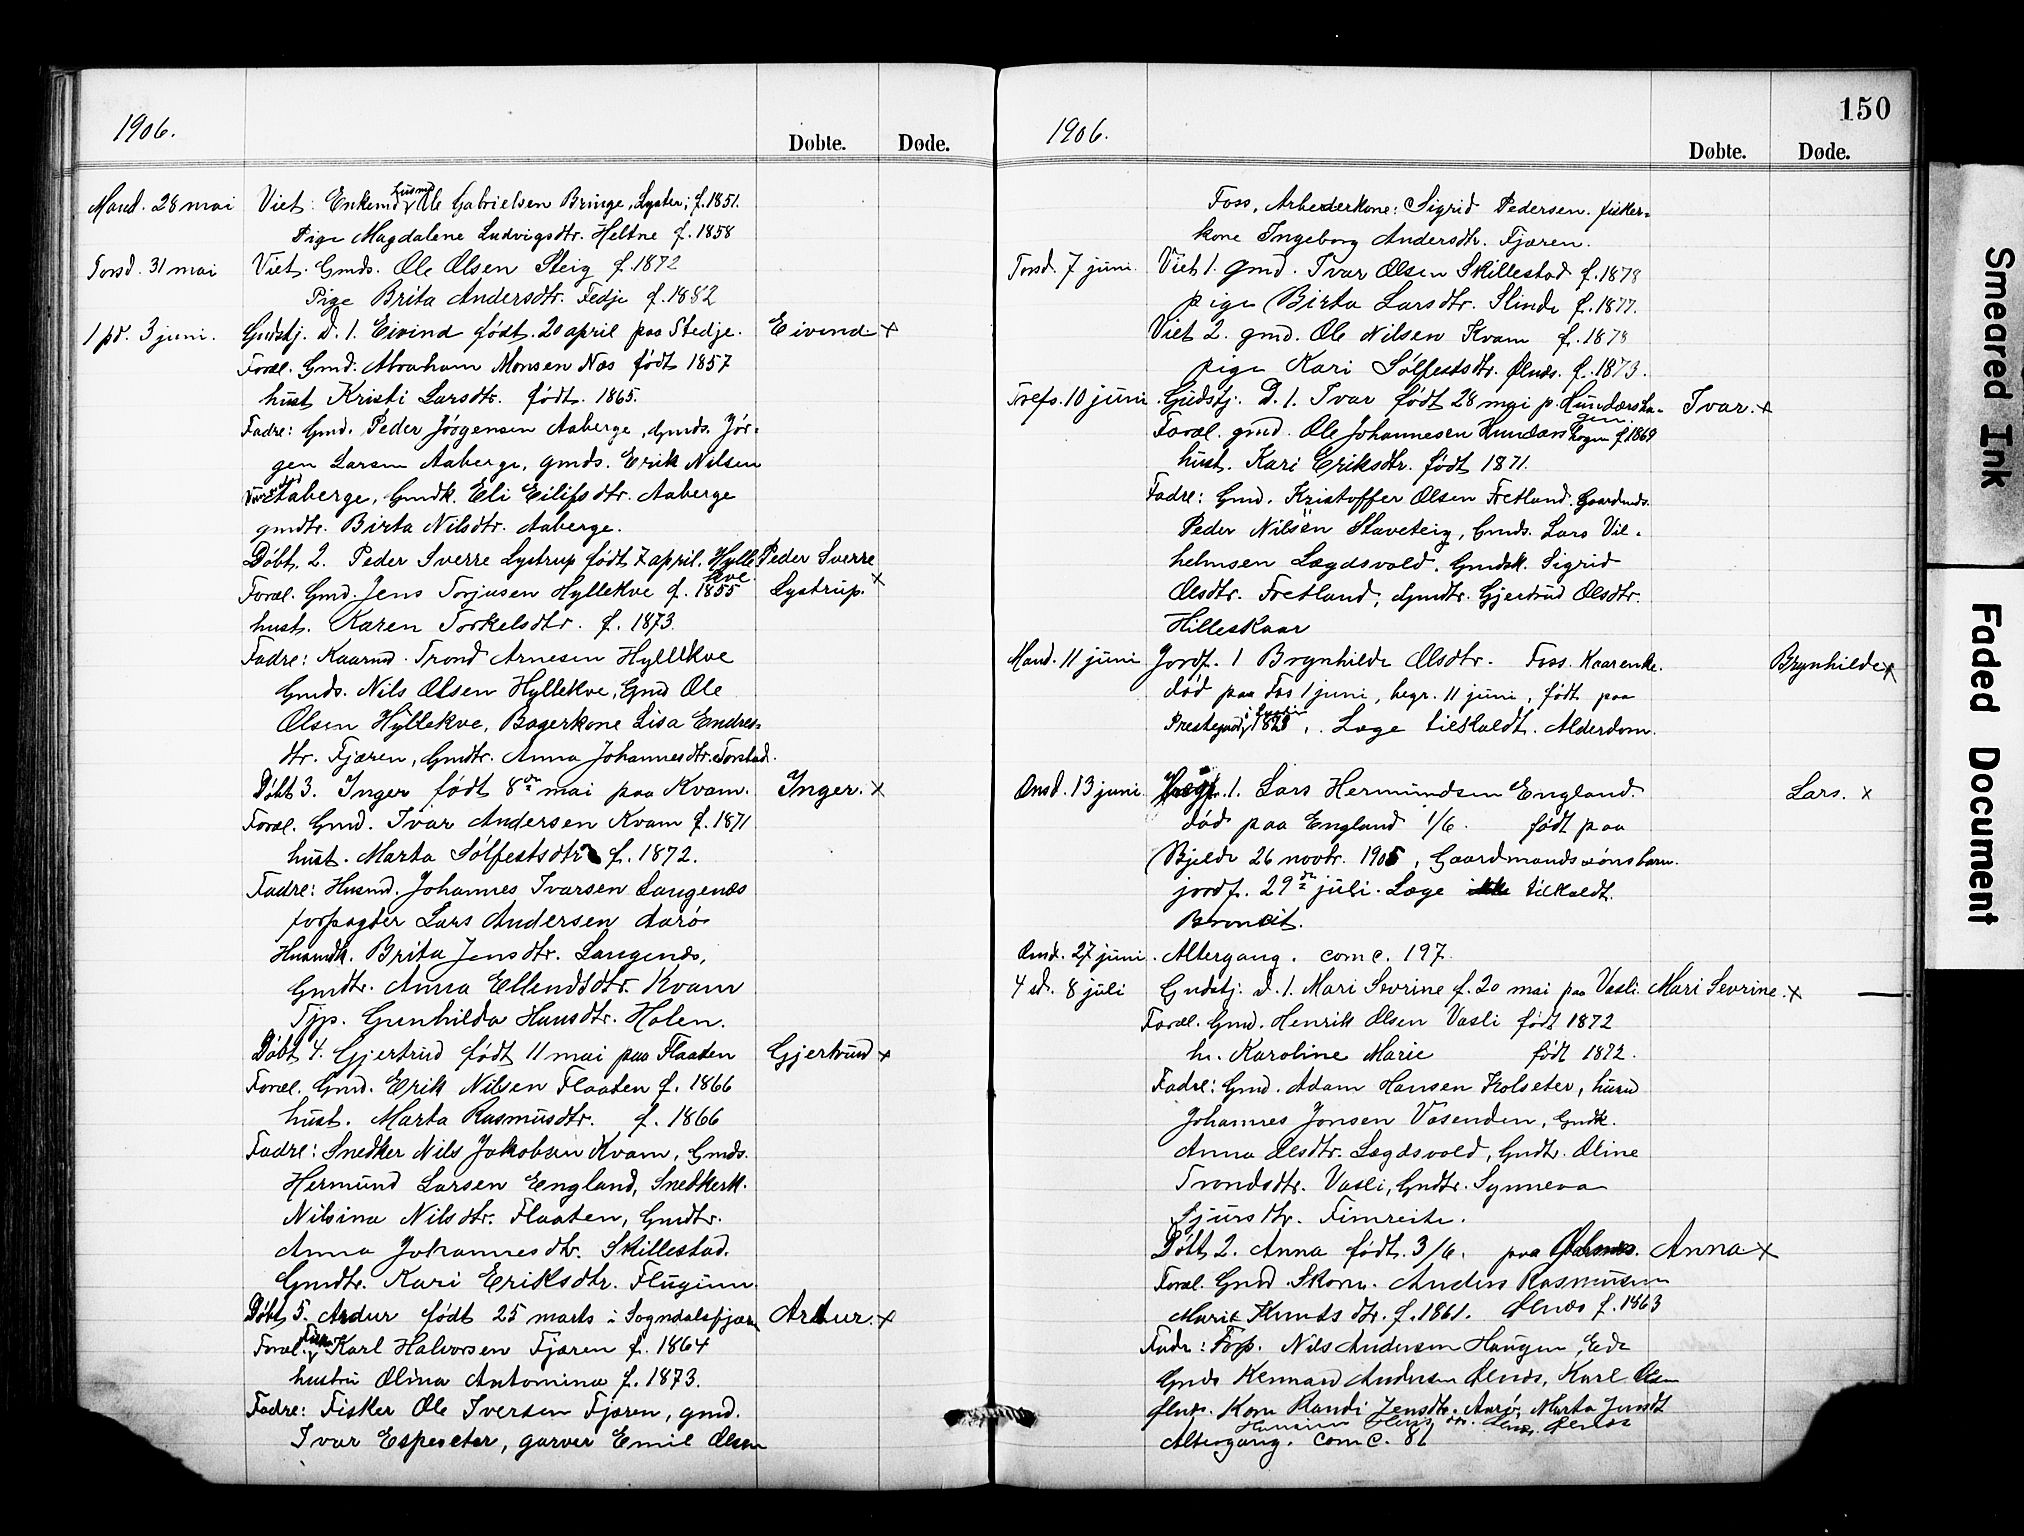 1906.
Døbte. Døde.
Mand. 28 mai Viet: Enkemd husmd Ole Gabrielsen Bringe, Lyster, f. 1851.
Pige Magdalene Ludvigsdtr. Heltne f. 1858
Torsd. 31 mai Viet. Gmds. Ole Olsen Steig f. 1872
Pige Brita Andersdtr. Fedje f. 1882
1 pd. 3 juni. Gudstj. D. 1. Eivind født 20 april paa Stedje. Eivind x
Foræl. Gmd. Abraham Monsen Næs født 1857
hust Kristi Larsdtr. født. 1865.
Fadre: Gmd. Peder Jørgensen Aaberge, Gmds. Jør-
gen Larsen Aaberge, gmds. Erik Nilsen
Aaberge, Gmdk. Eli Eilifsdtr. Aaberge
gmdtr. Birta Nilsdtr. Aaberge.
Døbt 2. Peder Sverre Lystrup født 7 april. Hylle Peder Sverre
kve
Foræl. Gmd. Jens Torjusen Hyllekve f. 1855 Lystrup. x
hust. Karen Torkelsdtr. f. 1873.
Fadre: Kaarmd. Trond Arnesen Hyllekve
Gmds. Nils Olsen Hyllekve, Gmd Ole
Olsen Hyllekve, Bagerkone Lisa Endres-
dtr. Fjæren, Gmdtr. Anna Johannesdtr. Torstad.
Døbt 3. Inger født 8de mai paa Kvam. Inger. x
Foræl. Gmd. Ivar Andersen Kvam f. 1871
hust. Marta Sølfestsdtr f. 1872.
Fadre: Husmd. Johannes Ivarsen Langenæs
forpagter Lars Andersen Aarø
Husmdk. Brita Jensdtr. Langenæs,
Gmdtr. Anna Ellendsdtr. Kvam
Tjp. Gunhilda Hansdtr. Holen.
Døbt 4. Gjertrud født 11 mai paa Flaaten Gjertrud x
Foræl. Gmd. Erik Nilsen Flaaten f. 1866
hust. Marta Rasmusdtr. f. 1866
Fadre: Snedker Nils Jakobsen Kvam, Gmds.
Hermund Larsen England, Snedkerk.
Nilsina Nilsdtr. Flaaten, Gmdtr.
Anna Johannesdtr. Skillestad.
Gmdtr. Kari Eriksdtr. Flugum.
Døbt 5. Artur født 25 marts i Sogndalsfjæren Artur. x
Foræl. Karl Halvorsen Fjæren f. 1864
hustru Olina Antomina f. 1873.
Fadre: Fisker Ole Iversen Fjæren, gmd.
Ivar Espeseter, garver Emil Olsen
150
1906.
Døbte. Døde.
Foss, Arbeiderkone: Sigrid Pedersen. fisker-
kone Ingeborg Andersdtr. Fjæren.
Torsd. 7 juni. Viet 1. gmd. Ivar Olsen Skillestad f. 1878
pige Birta Larsdtr. Slinde f. 1877.
Viet 2. gmd. Ole Nilsen Kvam f. 1878
pige Kari Sølfestsdtr. Ølnæs. f. 1873.
Trefs. 10 juni. Gudstj. D. 1. Ivar født 28 mai p. Hundersha- Ivar. x
gen.
Foræl. gmd. Ole Johannesen Hundershagen f. 1869
hust. Kari Eriksdtr. født 1871.
Fadre: Gmd. Kristoffer Olsen Fretland. Gaardmds.
Peder Nilsen Staveteig, Gmds. Lars Vil-
helmsen Lægdsvold, Gmdsk. Sigrid
Olsdtr. Fretland, Gmdtr. Gjertrud Olsdtr.
Hilleskaar
Mand. 11 juni Jordf. 1 Brynhilde Olsdtr. Foss. Kaarenke. Brynhilde x
død paa Fos 1 juni, begr. 11 juni, født paa
Prestegrd, 1823. Læge tilkaldt. Alderdom.
Onsd. 13 juni 1. Lars Hermundsen England. Lars. x
død paa England 1/6. født paa
Bjelde 26 novbr. 1905, Gaardmandssønsbarn.
jordf. 29de juli. Læge ikke tilkaldt.
Bronkit.
Onsd. 27 juni. Altergang. comc. 197.
4 sd. 8 juli Gudstj. d. 1. Mari Sevrine f. 20 mai paa Vasli. Mari Sevrine. x
Foræl. Gmd. Henrik Olsen Vasli født 1872
h. Karoline Marie født 1872.
Fadre: Gmd. Adam Hansen Kolseter, husm
Johannes Jonsen Vasenden, Gmdk.
Anna Olsdtr. Lægdsvold, Gmdtr. Oline
Trondsdtr. Vasli, Gmdtr. Synneva
Sjursdtr. Fimreite.
Døbt 2. Anna født. 3/6. paa Ølnæs. Anna x
Foræl. Gmd. Skom. Anders Rasmusen
Marie Knutsdtr. f. 1861. Ølnæs f. 1863
Fadr: Forp. Nils Andersen Haugen,
Gmds Andersen Ølnæs, Karl Olsen
Ølnæs. Kone Randi Jensdtr. Aarø, Marta Jensdt
Ølnæs
Altergang. comc. 86
Smeared Ink
Faded Document